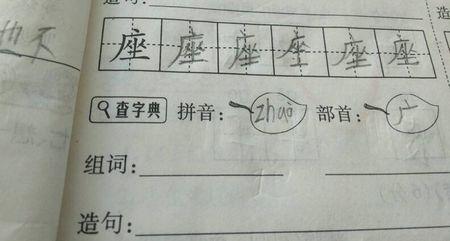 造句：
也不
座座座座座座
查字典 拼音：zhaò 部首：广
组词：
造句：